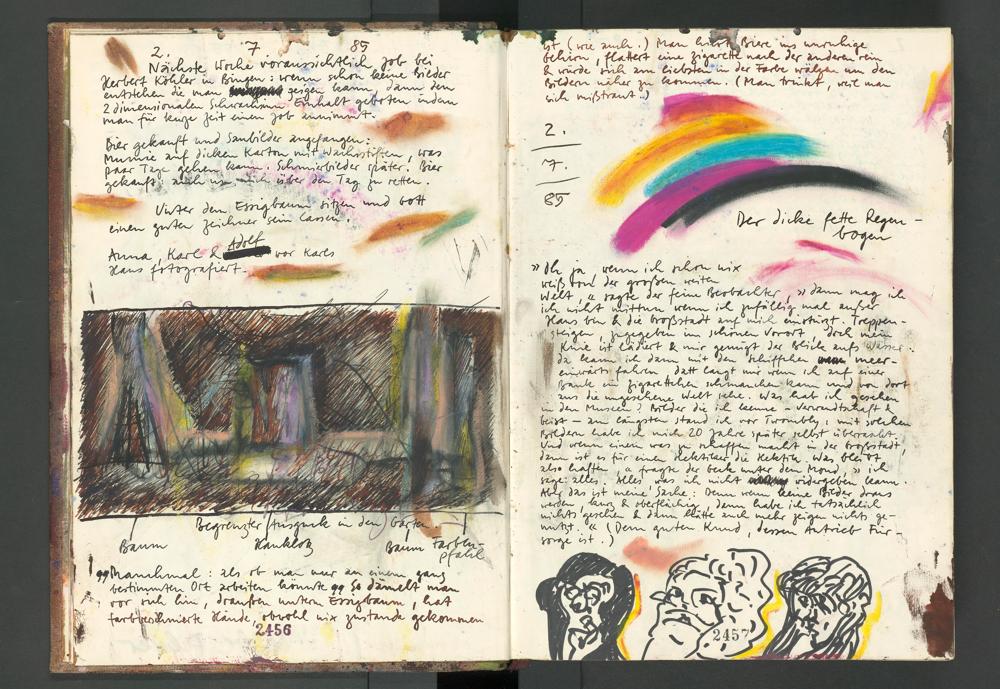 2. 7. 85
Nächste Woche voraussichtlich Job bei
Herbert Köhler in Bingen: wenn schon keine Bilder
entstehen die man zeigen kann, dann dem
2 dimensionalen Einhalt geboten indem
man für kurze Zeit einen Job annimmt.
Bier gekauft und Saubilder angefangen:
Mumie auf dicken Karton mit Wachsstiften, was
paar Tage gehen kann. Schmierbilder später. Bier
gekauft, auch um mich über den Tag zu retten.
Unter dem Essigbaum sitzen und Gott
einen guten Zeichner sein lassen.
Adolf
Anna, Karl & vor Karls
Haus fotografiert.
Begrenzter Ausguck in den Garten
Baum Hauklotz Baum Farben-
pfahl
"Manchmal: als ob man nur an einem ganz
bestimmten Ort arbeiten könnte" So dämelt man
vor sich hin, draußen unterm Essigbaum, hat
farbbeschmierte Hände, obwohl nix zustande gekommen
2456
ist (wie auch.) Man hievt Biere ins unruhige
Gehirn, flattert eine Zigarette nach der anderen rein
& würde sich am liebsten in der Farbe wälzen um den
Bildern näher zu kommen. (Man trinkt, weil man
sich mißtraut.)
2.
7.
85
Der dicke fette Regen-
bogen
"Oh ja, wenn ich schon nix
weiß von der großen weiten
Welt," sagte der feine Beobachter, "dann mag ich
ich nicht mittun wenn ich zufällig mal außer
Haus bin & die Großstadt auf mich einstürzt. Treppen-
steigen, zugegeben im schönen Vorort, doch mein
Knie ist lädiert & mir genügt der Blick aufs Wasser.
da kann ich dann mit den Schiffchen meer-
einwärts fahren. Datt langt mir wenn ich auf einer
Bank ein Zigarettchen schmauchen kann und von dort
aus die ungesehene Welt sehe. Was hab ich gesehen
in den Museen? Bilder die ich kenne – Verwandtschaft &
Geist – am längsten stand ich vor Twombly; mit solchen
Bildern habe ich mich 20 Jahre später selbst überrascht.
Und wenn einem was zu schaffen macht in der Großstadt,
dann ist es für einen Hektiker die Hektik. Was bleibt
also haften," fragte der Geck unter dem Mond, "ich
sage: alles. Alles, was ich nicht widergeben kann.
Aber das ist meine Sache: Denn wenn keine Bilder draus
werden, laut & oberflächlich, dann habe ich tatsächlich
nichts gesehen & dann hätte auch mehr zeigen nichts ge-
nützt." (Dem guten Knud, dessen Antrieb Für-
sorge ist.)
2457